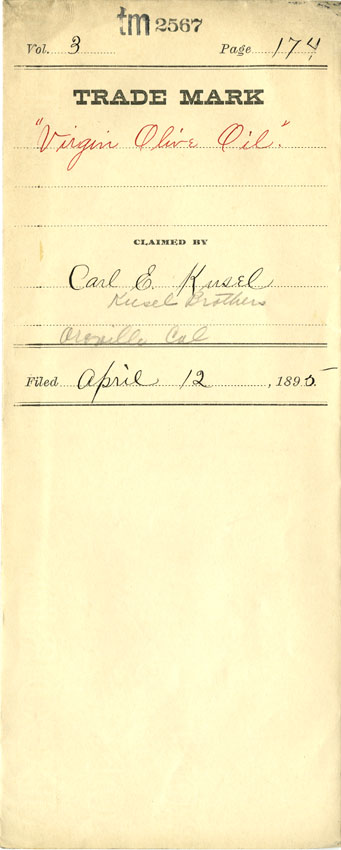 tm 2567
Vol. 3 Page 174
TRADE MARK
"Virgin Olive Oil."
CLAIMED BY
Carl E. Kusel
Kusel Brothers
Oroville Cal
Filed April 12, 1895